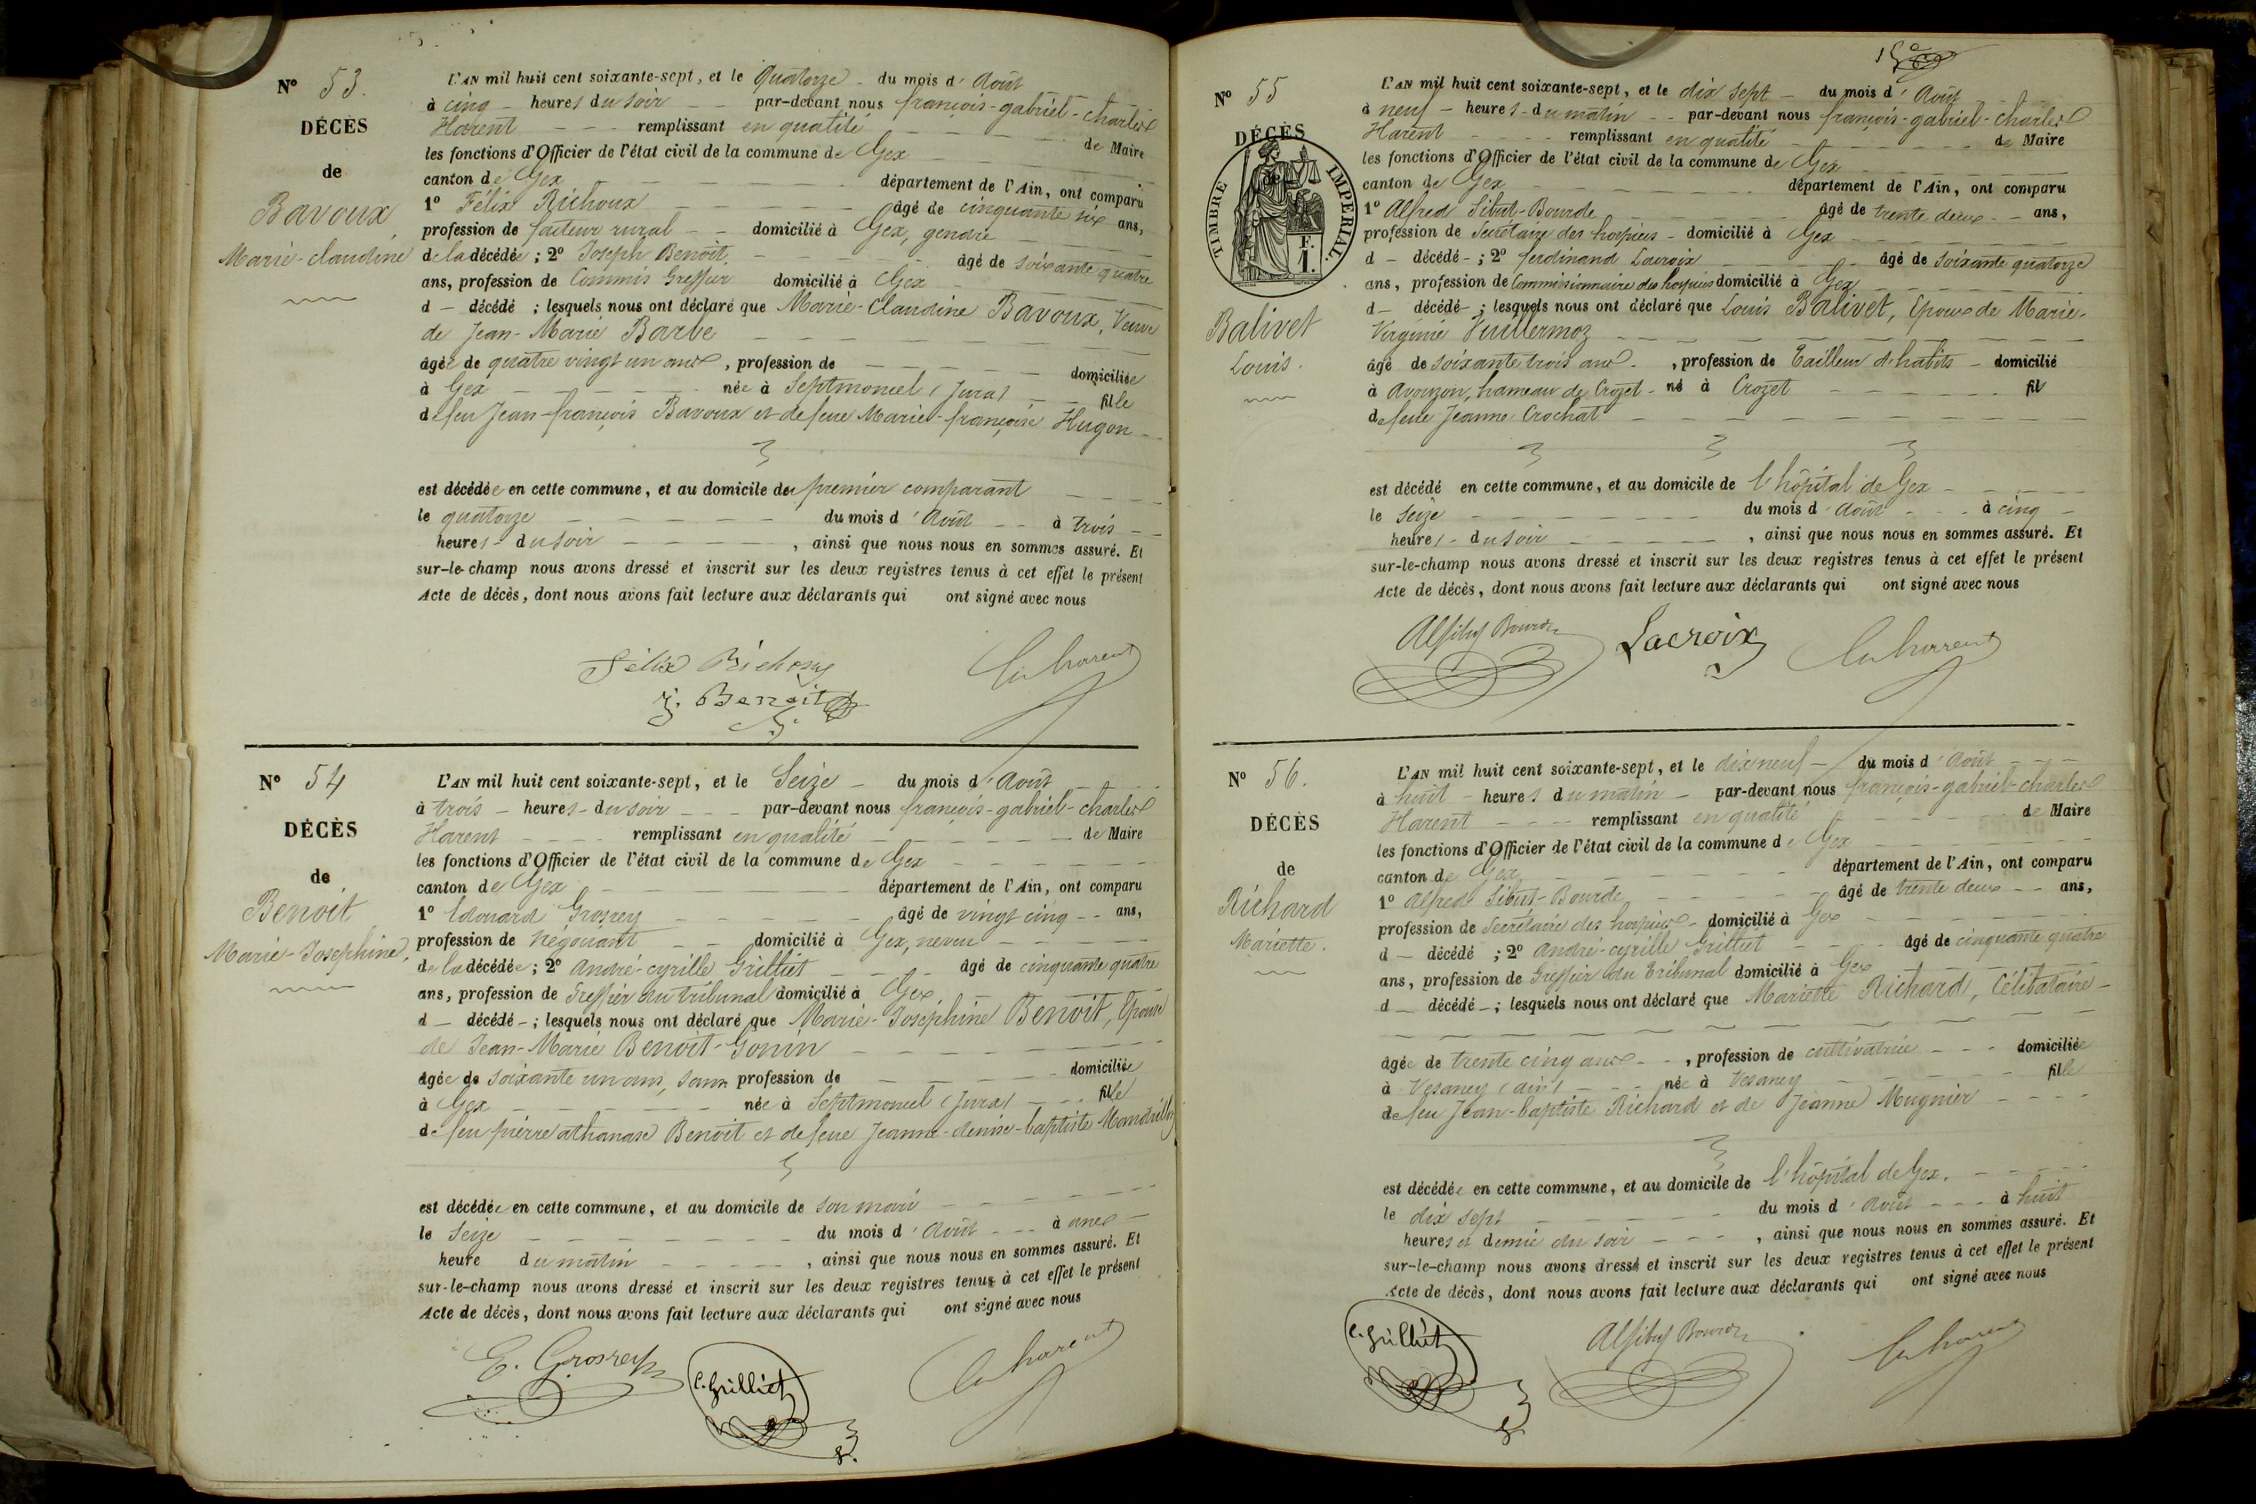 Nº 53.
DÉCÈS
de
Bavoux,
Marie-claudine
L'AN mil huit cent soixante-sept, et le quatorze du mois d'Août
à cinq heures du soir par-devant nous françois-gabriel-charles
Harent remplissant en qualité de Maire
les fonctions d'Officier de l'état civil de la commune de Gex
canton de Gex département de l'Ain, ont comparu
1º Félix Richoux âgé de cinquante six ans,
profession de facteur rural domicilié à Gex, gendre
de la décédée; 2º Joseph Benoit âgé de soixante quatre
ans, profession de Commis Greffier domicilié à Gex
d — décédé ; lesquels nous ont déclaré que Marie-Claudine Bavoux, Veuve
de Jean-Marie Barbe
âgée de quatre vingt un ans, profession de domiciliée
à Gex née à Septmoncel (Jura) fille
de feu Jean-françois Bavoux et de feue Marie-françoise Hugon
est décédée en cette commune, et au domicile du premier comparant
le quatorze du mois d'Août à trois
heures du soir, ainsi que nous nous en sommes assuré. Et
sur-le-champ nous avons dressé et inscrit sur les deux registres tenus à cet effet le présent
Acte de décès, dont nous avons fait lecture aux déclarants qui ont signé avec nous
Félix Richoux
J. Benoit
Harent
Nº 54
DÉCÈS
de
Benoit
Marie-Josephine,
L'AN mil huit cent soixante-sept, et le Seize du mois d'Août
à trois heures du soir par-devant nous françois-gabriel-charles
Harent remplissant en qualité de Maire
les fonctions d'Officier de l'état civil de la commune de Gex
canton de Gex département de l'Ain, ont comparu
1º Edouard Grosrey âgé de vingt cinq ans,
profession de négociant domicilié à Gex, neveu
de la décédée; 2º André-cyrille Grilliet âgé de cinquante quatre
ans, profession de Greffier du tribunal domicilié à Gex
d — décédé; lesquels nous ont déclaré que Marie-Joséphine Benoit, Epouse
de Jean-Marie Benoit-Gonin
âgée de soixante un ans, sans profession de domiciliée
à Gex née à Septmoncel (Jura) fille
de feu pierre athanase Benoit et de feue Jeanne-denise-baptiste Mandrillon
est décédée en cette commune, et au domicile de son mari
le Seize du mois d'Août à une
heure du matin, ainsi que nous nous en sommes assuré. Et
sur-le-champ nous avons dressé et inscrit sur les deux registres tenus à cet effet le présent
Acte de décès, dont nous avons fait lecture aux déclarants qui ont signé avec nous
E. Grosrey
C. Grilliet
Harent
Nº 55
DÉCÈS
de
TIMBRE IMPÉRIAL.
Balivet
Louis.
L'AN mil huit cent soixante-sept, et le dix sept du mois d'Août
à neuf heures du matin par-devant nous françois-gabriel-charles
Harent remplissant en qualité de Maire
les fonctions d'Officier de l'état civil de la commune de Gex
canton de Gex département de l'Ain, ont comparu
1º Alfred Sibut-Bourde âgé de trente deux ans,
profession de Secrétaire des hospices domicilié à Gex
d — décédé; 2º ferdinand Lacroix âgé de soixante quatorze
ans, profession de Commissionnaire des hospices domicilié à Gex
d — décédé; lesquels nous ont déclaré que Louis Balivet, Epoux de Marie-
Virginie Vuillermoz
âgé de soixante trois ans, profession de Tailleur d'habits domicilié
à Avouzon, hameau de Crozet né à Crozet fils
de feue Jeanne Crochat
est décédé en cette commune, et au domicile de l'hôpital de Gex
le Seize du mois d'Août à cinq
heures du soir, ainsi que nous nous en sommes assuré. Et
sur-le-champ nous avons dressé et inscrit sur les deux registres tenus à cet effet le présent
Acte de décès, dont nous avons fait lecture aux déclarants qui ont signé avec nous
Alf Sibut Bourde
Lacroix
Harent
Nº 56.
DÉCÈS
de
Richard
Mariette.
L'AN mil huit cent soixante-sept, et le dix neuf du mois d'Août
à huit heures du matin par-devant nous françois-gabriel-charles
Harent remplissant en qualité de Maire
les fonctions d'Officier de l'état civil de la commune de Gex
canton de Gex département de l'Ain, ont comparu
1º Alfred Sibut-Bourde âgé de trente deux ans,
profession de Secrétaire des hospices domicilié à Gex
d — décédé ; 2º André-cyrille Grilliet âgé de cinquante quatre
ans, profession de Greffier du Tribunal domicilié à Gex
d — décédé; lesquels nous ont déclaré que Mariette Richard, Célibataire
âgée de trente cinq ans, profession de cultivatrice domiciliée
à Vesancy (ain) née à Vesancy fille
de feu Jean-baptiste Richard et de Jeanne Mugnier
est décédée en cette commune, et au domicile de l'hôpital de Gex.
le dix sept du mois d'Août à huit
heures et demie du soir, ainsi que nous nous en sommes assuré. Et
sur-le-champ nous avons dressé et inscrit sur les deux registres tenus à cet effet le présent
Acte de décès, dont nous avons fait lecture aux déclarants qui ont signé avec nous
C. Grilliet
Alf Sibut Bourde
Harent